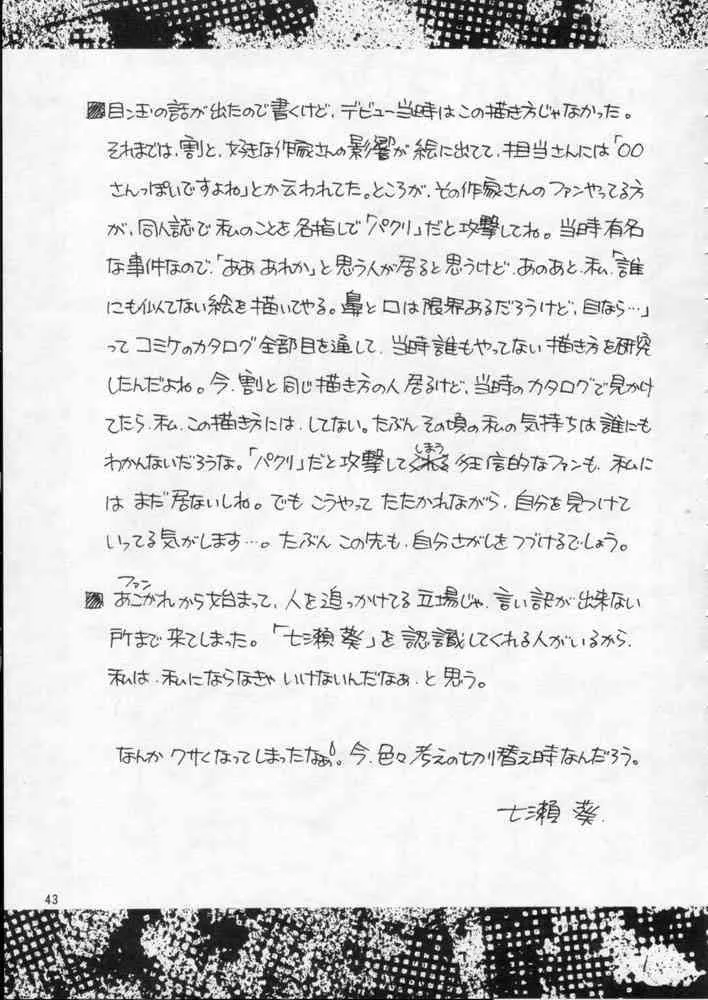 目ン玉の話が出たので書くけど、デビュー当時はこの描き方じゃなかった。
それまでは、割と、好きな作家さんの影響が絵に出てて、担当さんには「〇〇
さんっぽいですよね」とか云われてた。ところが、その作家さんのファンやってる方
が、同人誌で私のことを名指しで「パクリ」だと攻撃してね。当時有名
な事件なので、「ああ あれか」と思う人が居ると思うけど、あのあと、私、「誰
にも似てない絵を描いてやる。鼻と口は限界あるだろうけど、目なら…」
って コミケのカタログ全部目を通して、当時誰もやってない描き方を研究
したんだよね。今、割と同じ描き方の人居るけど、当時のカタログで見かけ
てたら、私、この描き方には、してない。たぶん その頃の私の気持ちは誰にも
わかんないだろうな。「パクリ」だと攻撃してしまう狂信的なファンも、私に
は まだ居ないしね。でも こうやって たたかれながら、自分を見つけて
いってる気がします…。たぶん この先も、自分さがしをつづけるでしょう。
ファン
あこがれから始まって、人を追っかけてる立場じゃ、言い訳が出来ない
所まで来てしまった。「七瀬葵」を認識してくれる人がいるから、
私は、私にならなきゃ いけないんだなぁ、と思う。
なんか クサくなってしまったなぁ。今、色々 考えの切り替え時なんだろう。
七瀬 葵.
43